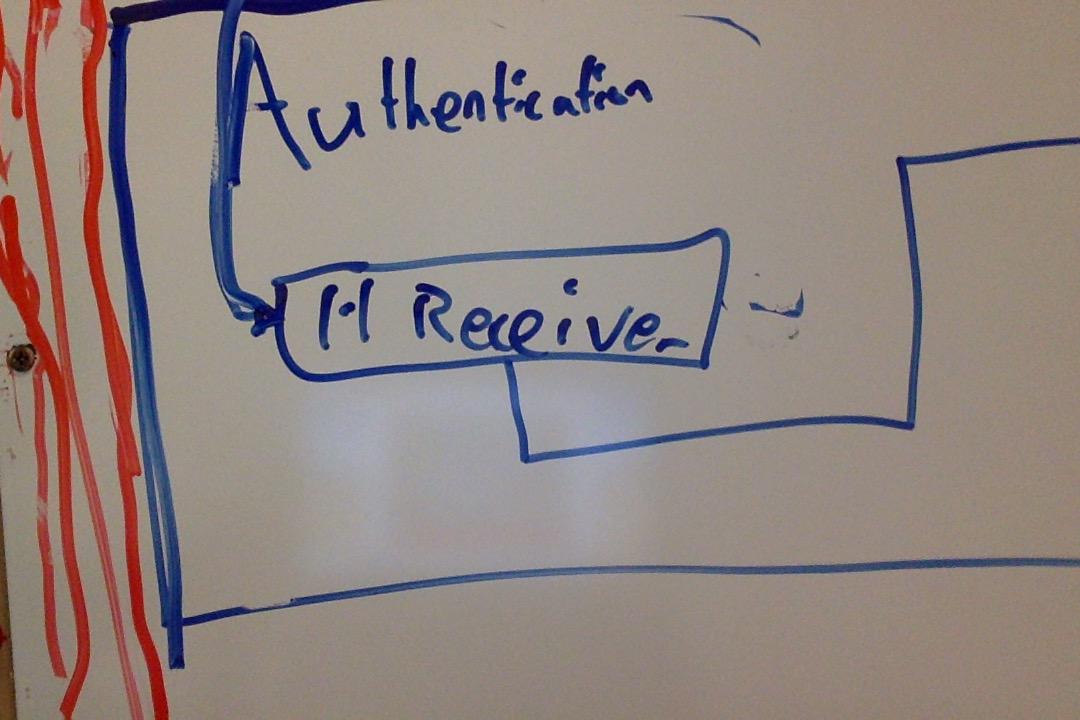 Authentication
M Receiver